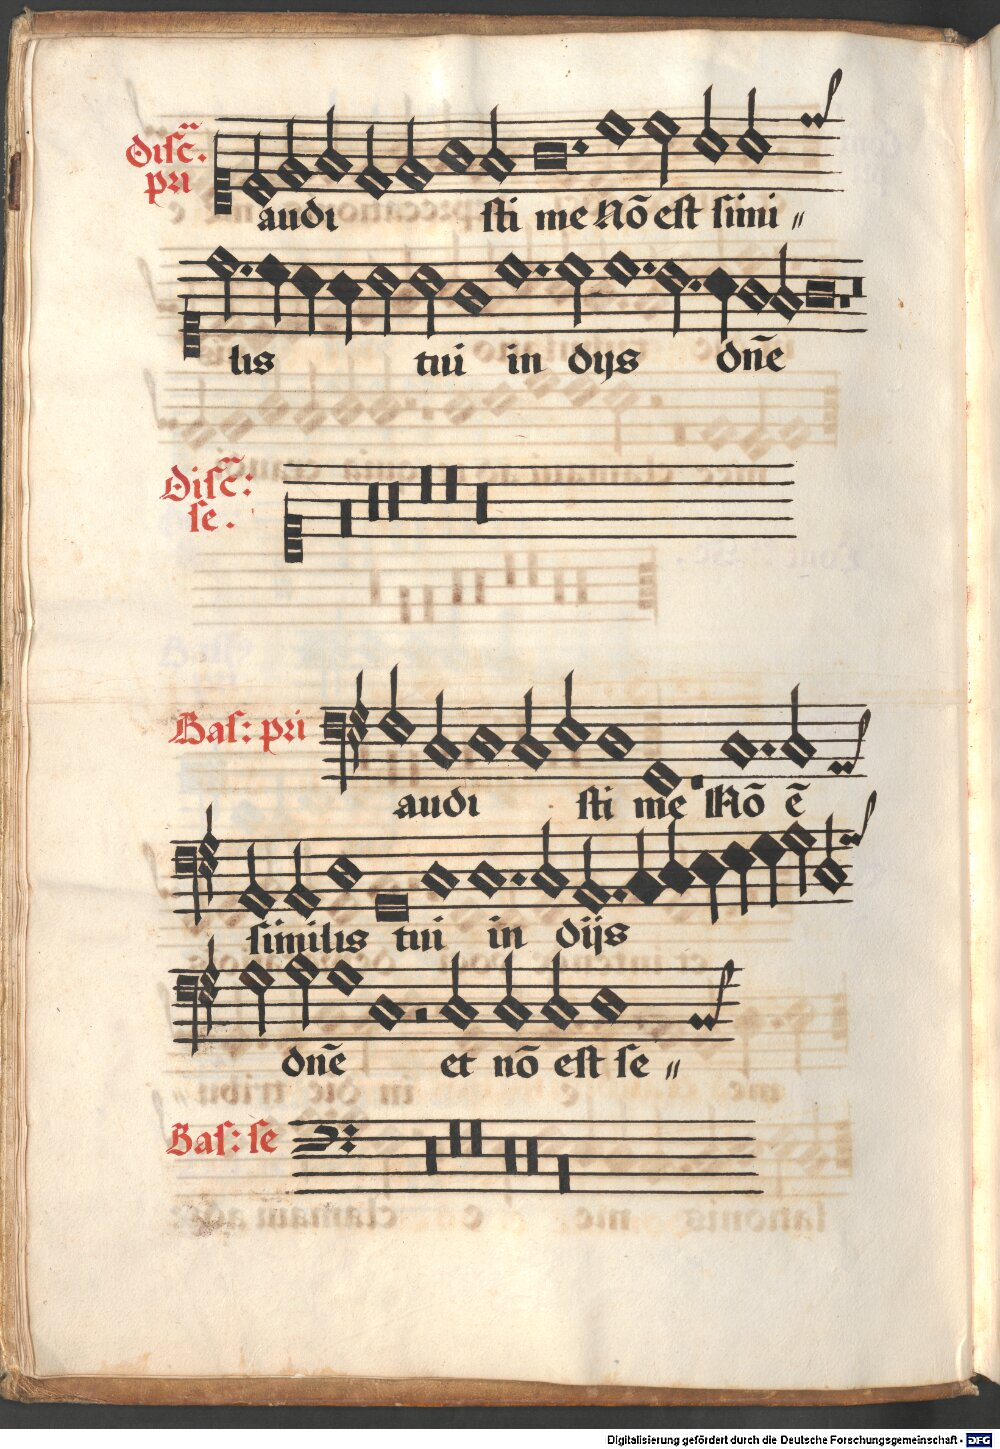 Disc̄.
pri
audi sti me Nō est simi〃
lis tui in dijs dn̄e
Disc̄:
se.
Bas: pri
audi sti me Nō ē
similis tui in dijs
dn̄e et nō est se〃
Bas: se
Digitalisierung gefördert durch die Deutsche Forschungsgemeinschaft - DFG